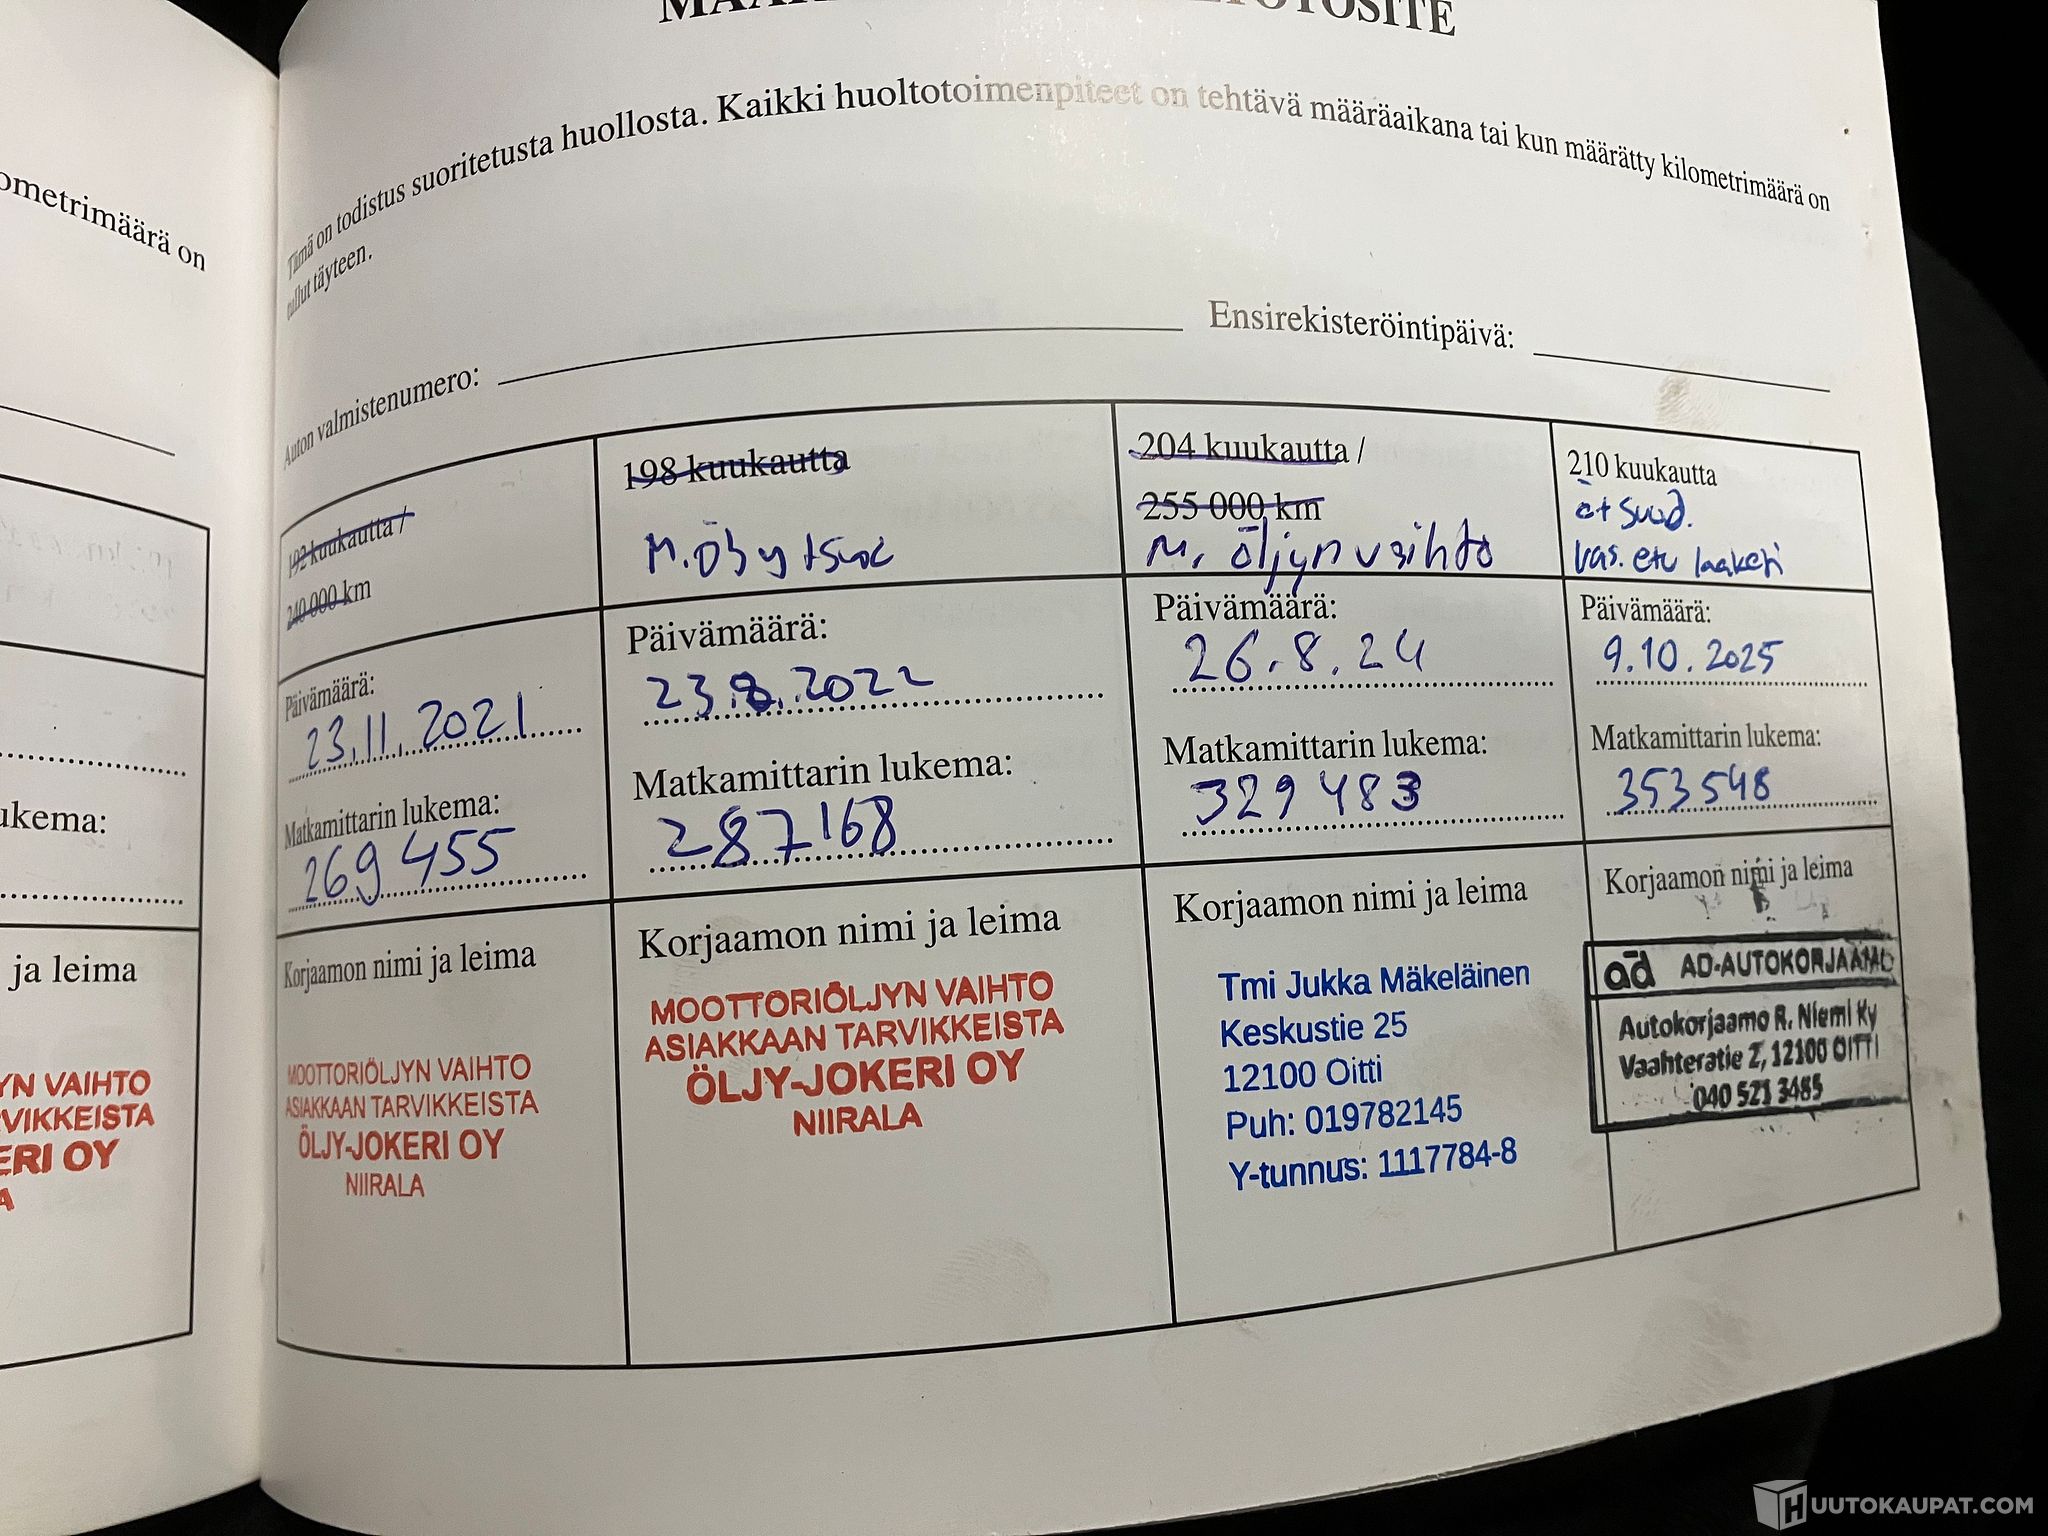 ometrimäärä on
ukema:
ja leima
YN VAIHTO
RVIKKEISTA
ERI OY
A
OTOSITE
Tämä on todistus suoritetusta huollosta. Kaikki huoltotoimenpiteet on tehtävä määräaikana tai kun määrätty kilometrimäärä on
tullut täyteen.
Auton valmistenumero:
Ensirekisteröintipäivä:
192 kuukautta /
240 000 km
Päivämäärä:
23.11.2021
Matkamittarin lukema:
269 455
Korjaamon nimi ja leima
MOOTTORIÖLJYN VAIHTO
ASIAKKAAN TARVIKKEISTA
ÖLJY-JOKERI OY
NIIRALA
198 kuukautta
Päivämäärä:
23.8.2022
Matkamittarin lukema:
287168
Korjaamon nimi ja leima
MOOTTORIÖLJYN VAIHTO
ASIAKKAAN TARVIKKEISTA
ÖLJY-JOKERI OY
NIIRALA
204 kuukautta /
255 000 km
M. öljyn vaihto
Päivämäärä:
26.8.24
Matkamittarin lukema:
329 483
Korjaamon nimi ja leima
Tmi Jukka Mäkeläinen
Keskustie 25
12100 Oitti
Puh: 019782145
Y-tunnus: 1117784-8
210 kuukautta
öt suod.
vas. etu laakeri
Päivämäärä:
9.10.2025
Matkamittarin lukema:
353548
Korjaamon nimi ja leima
ad AD-AUTOKORJAAMO
Autokorjaamo R. Niemi Ky
Vaahteratie 2, 12100 OITTI
040 521 3485
HUUTOKAUPAT.COM